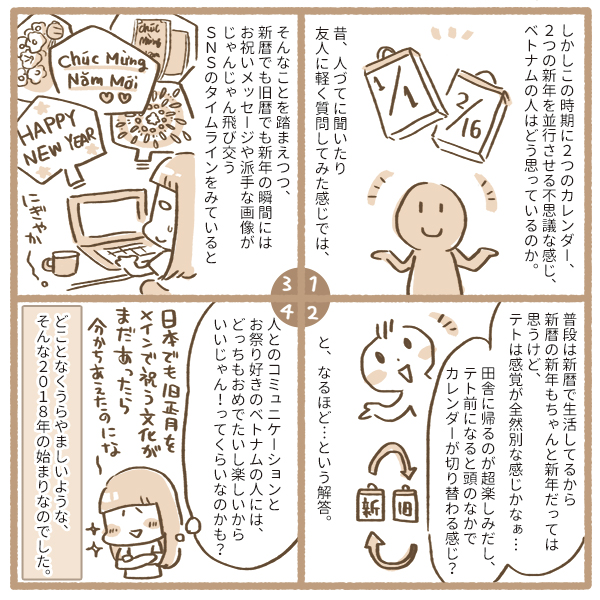 しかしこの時期に２つのカレンダー、
２つの新年を並行させる不思議な感じ、
ベトナムの人はどう思っているのか。
1/1
2/16
昔、人づてに聞いたり
友人に軽く質問してみた感じでは、
1
普段は新暦で生活してるから
新暦の新年もちゃんと新年だっては
思うけど、
テトは感覚が全然別な感じかなぁ…
田舎に帰るのが超楽しみだし、
テト前になると頭のなかで
カレンダーが切り替わる感じ？
新
旧
と、なるほど…という解答。
2
そんなことを踏まえつつ、
新暦でも旧暦でも新年の瞬間には
お祝いメッセージや派手な画像が
じゃんじゃん飛び交う
ＳＮＳのタイムラインをみていると
Chúc Mừng
Năm Mới
Chúc
Mừng
HAPPY
NEW YEAR
にぎやか〜
3
人とのコミュニケーションと
お祭り好きのベトナムの人には、
どっちもおめでたいし楽しいから
いいじゃん！ってくらいなのかも？
日本でも旧正月を
メインで祝う文化が
まだあったら
分かちあえたのにな〜
どことなくうらやましいような、
そんな２０１８年の始まりなのでした。
4